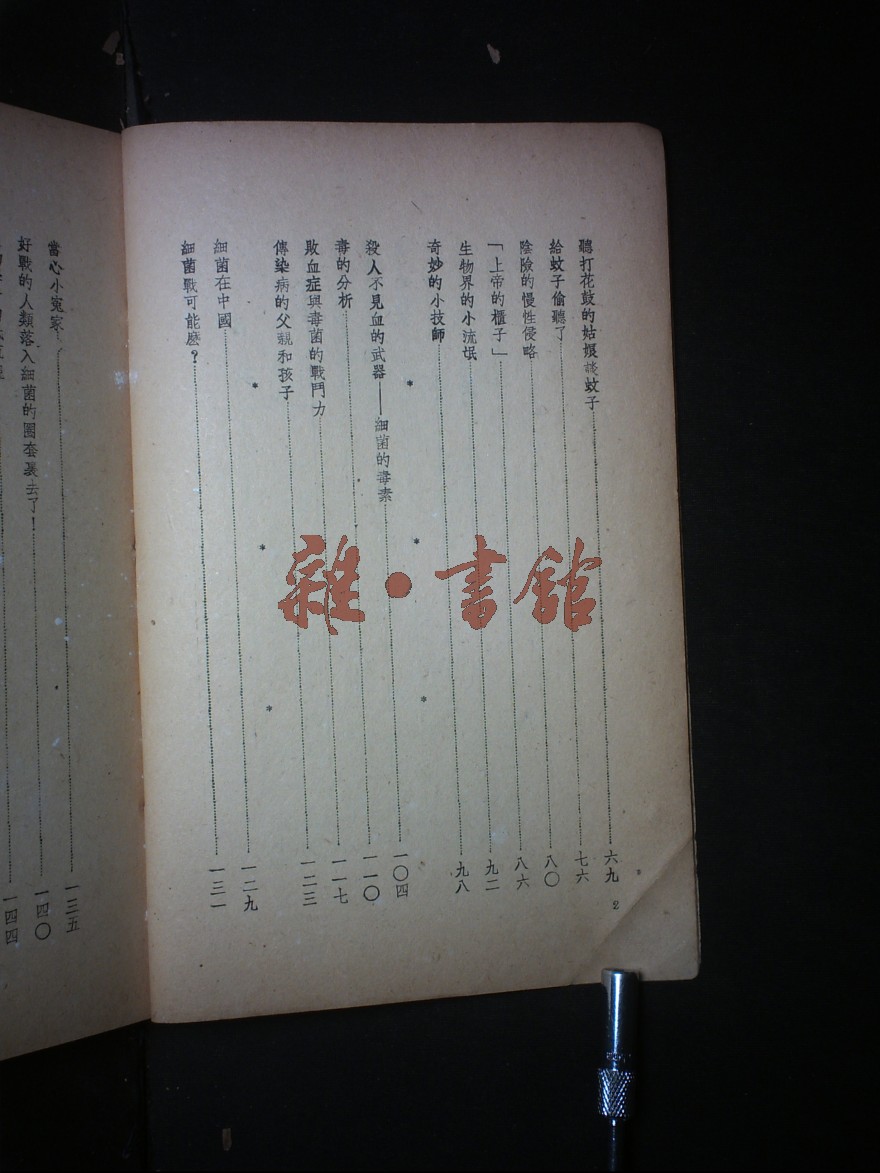 聽打花鼓的姑娘談蚊子……六九
給蚊子偷聽了……七六
陰險的慢性侵略……八〇
「上帝的櫃子」……八六
生物界的小流氓……九二
奇妙的小技師……九八
* * *
殺人不見血的武器——細菌的毒素……一〇四
毒的分析……一一〇
敗血症與毒菌的戰鬥力……一一七
傳染病的父親和孩子……一二三
* * *
細菌在中國……一二九
細菌戰可能麽?……一三一
2
當心小冤家……一三五
好戰的人類落入細菌的圈套裏去了!……一四〇
一四四
雜·書館